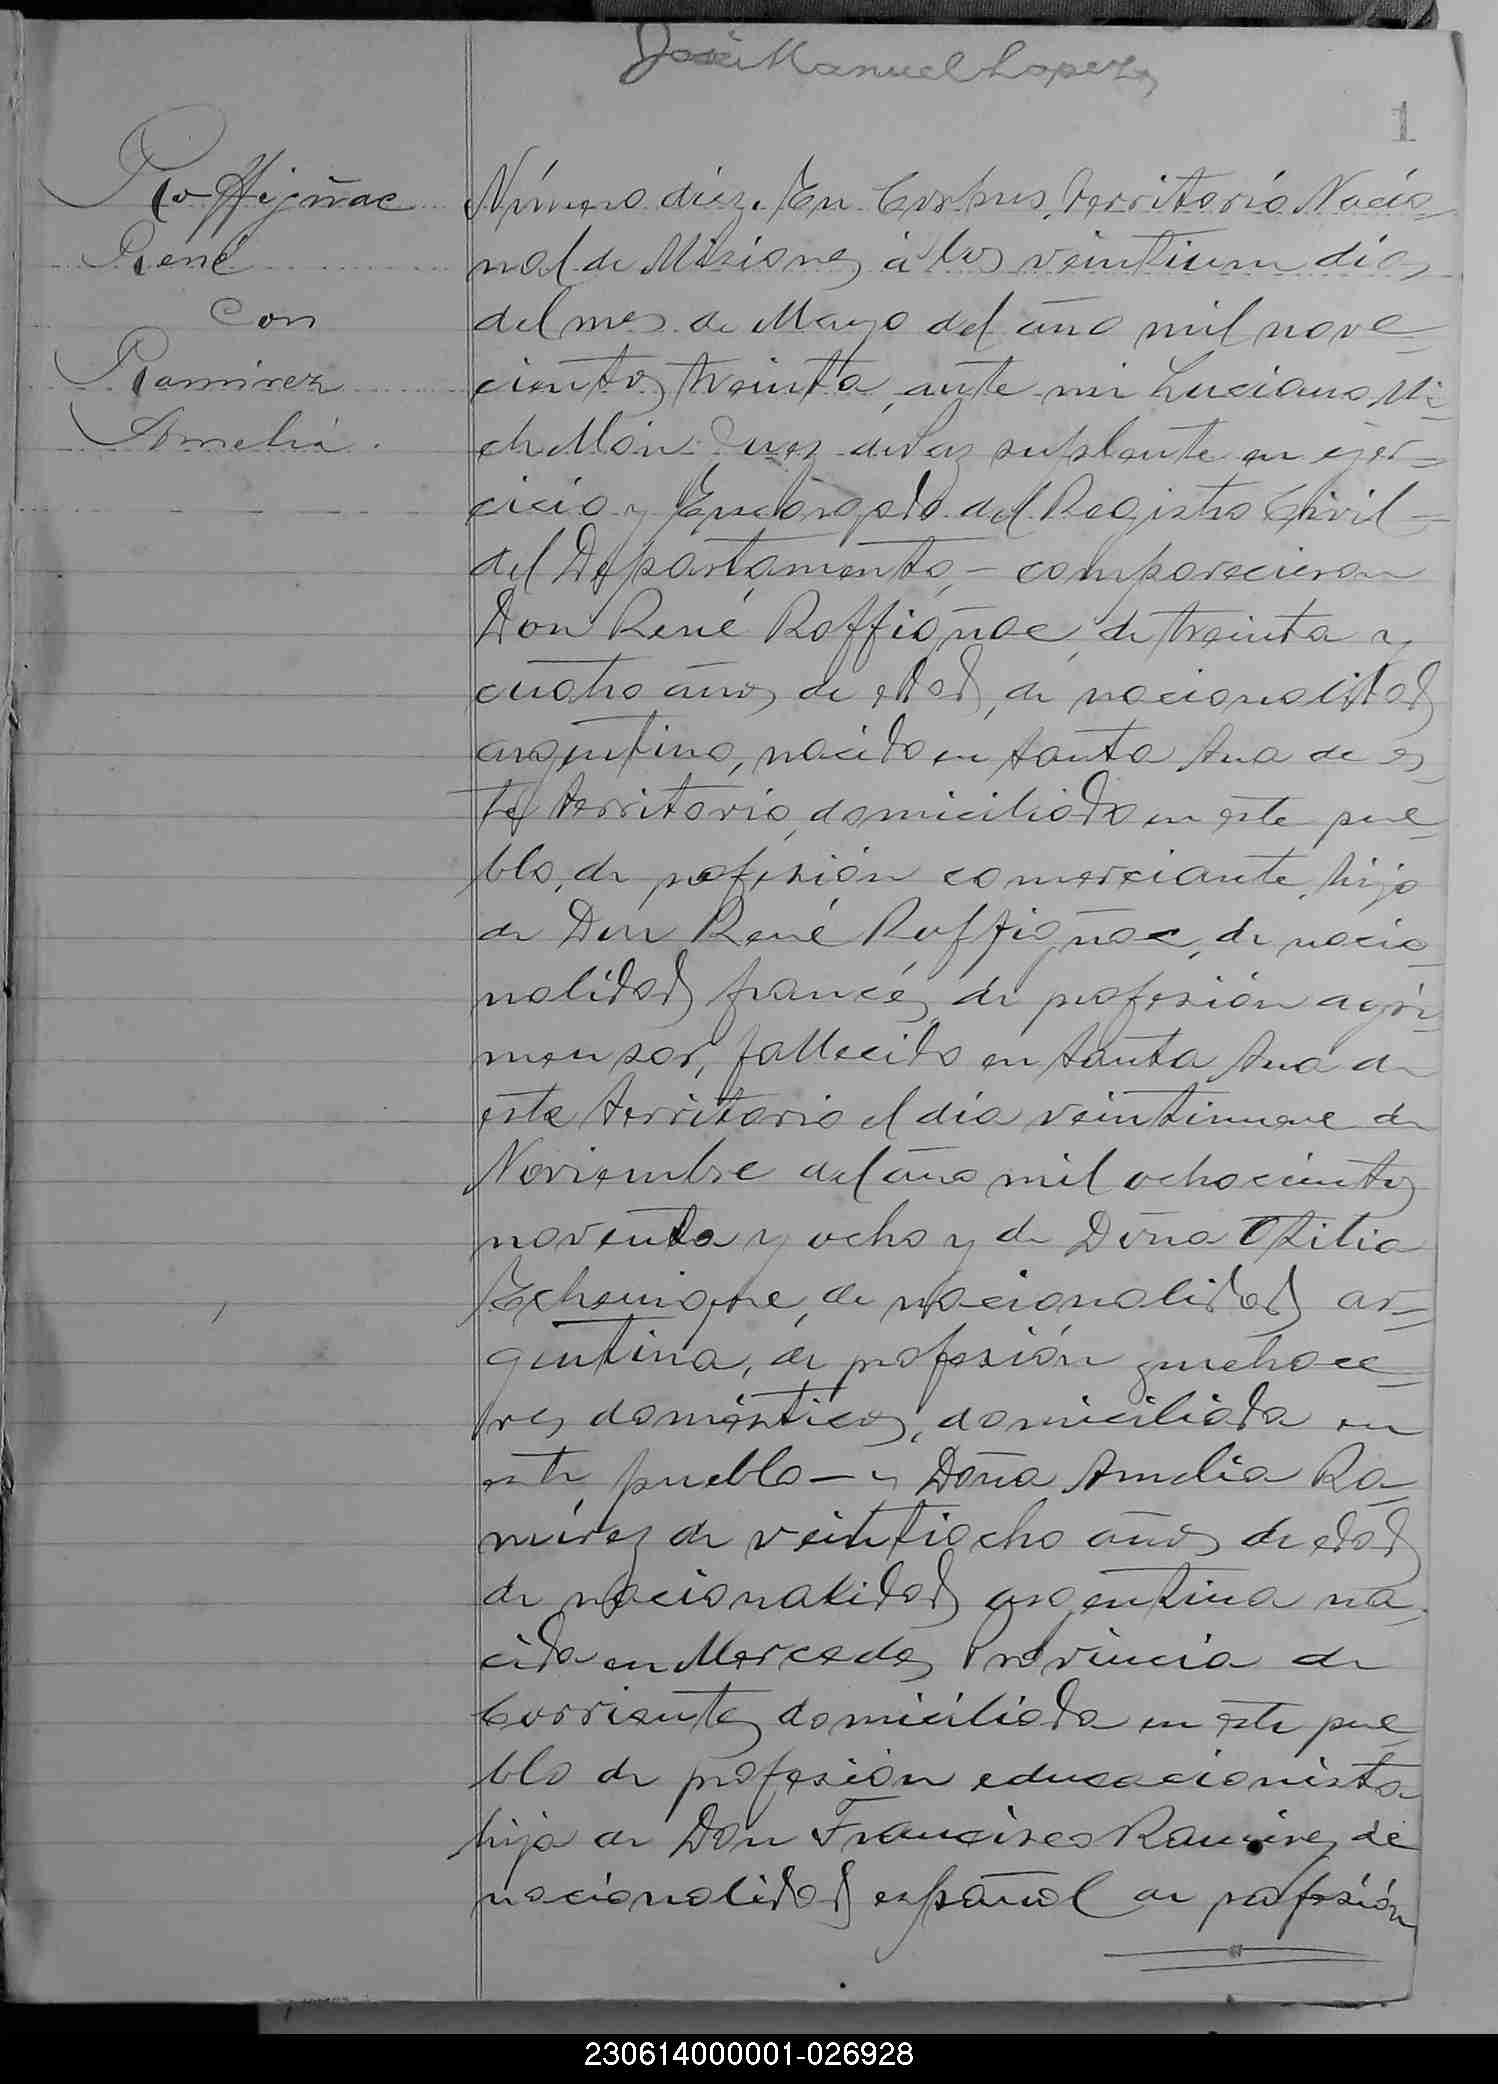 José Manuel Lopez
1
Roffigñac
René
con
Ramirez
Amelia.
Número diez. En Corpus, territorio Nacio-
nal de Misiones á los veintiun dias
del mes de Mayo del año mil nove-
cientos treinta, ante mi Luciano Mi-
chellón Juez de Paz suplente en ejer-
cicio y Encargado del Registro Civil
del Departamento, - comparecieron
Don René Roffigñac, de treinta y
cuatro años de edad, de nacionalidad
argentino, nacido en Santa Ana de es-
te territorio, domiciliado en este pue-
blo, de profesión comerciante, hijo
de Don René Roffigñac, de nacio-
nalidad francés, de profesión agri-
mensor, fallecido en Santa Ana de
este territorio el dia veintinueve de
Noviembre del año mil ochocientos
noventa y ocho y de Doña Otilia
Echenique, de nacionalidad ar-
gentina, de profesión quehace-
res domésticos, domiciliada en
este pueblo - y Doña Amelia Ra-
mírez de veintiocho años de edad
de nacionalidad argentina na-
cida en Mercedes Provincia de
Corrientes domiciliada en este pue-
blo de profesión educacionista
hija de Don Francisco Ramirez de
nacionalidad español de profesión
230614000001-026928